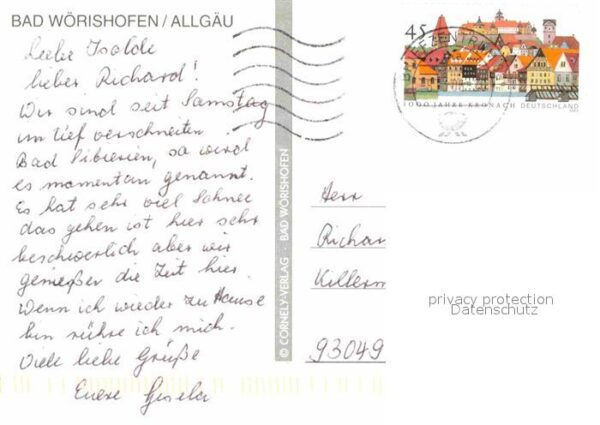 BAD WÖRISHOFEN / ALLGÄU
Liebe Isolde
lieber Richard!
Wir sind seit Samstag
im tief verschneiten
Bad Sibirien, so wird
es momentan genannt.
Es hat sehr viel Schnee
das gehen ist hier sehr
beschwerlich aber wir
genießen die Zeit hier.
Wenn ich wieder zu Hause
bin rühre ich mich.
Viele liebe Grüße
Euere Gisela
© CORNELY-VERLAG · BAD WÖRISHOFEN
45
1000 JAHRE KRONACH DEUTSCHLAND
Herr
Richar
Killerm
93049
privacy protection
Datenschutz